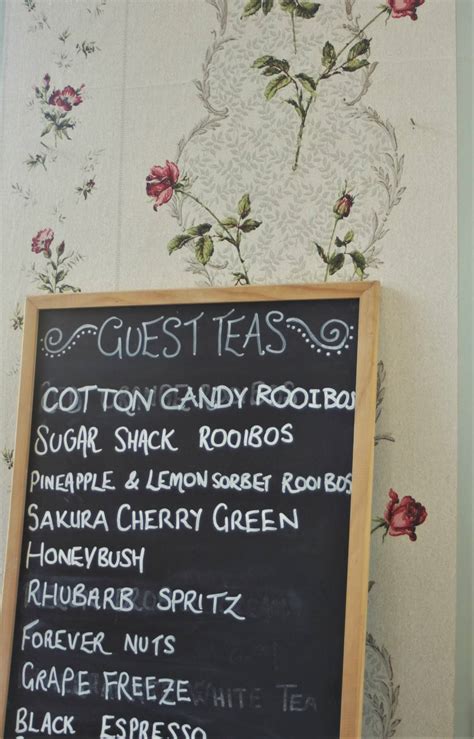 GUEST TEAS
COTTON CANDY ROOIBOS
SUGAR SHACK ROOIBOS
PINEAPPLE & LEMON SORBET ROOIBOS
SAKURA CHERRY GREEN
HONEYBUSH
RHUBARB SPRITZ
FOREVER NUTS
GRAPE FREEZE
WHITE TEA
BLACK ESPRESSO